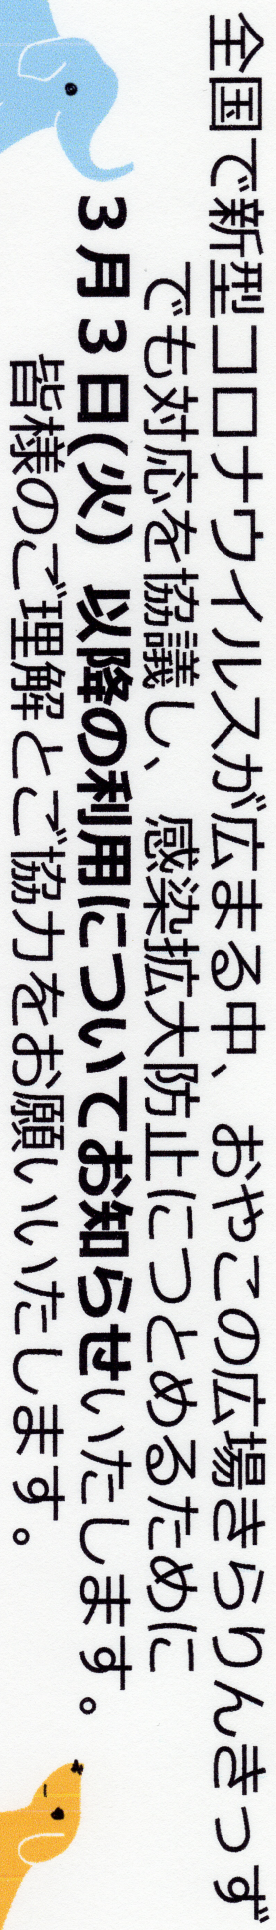 全国で新型コロナウイルスが広まる中、おやこの広場きらりんきっず
でも対応を協議し、感染拡大防止につとめるために
3月3日(火) 以降の利用についてお知らせいたします。
皆様のご理解とご協力をお願いいたします。